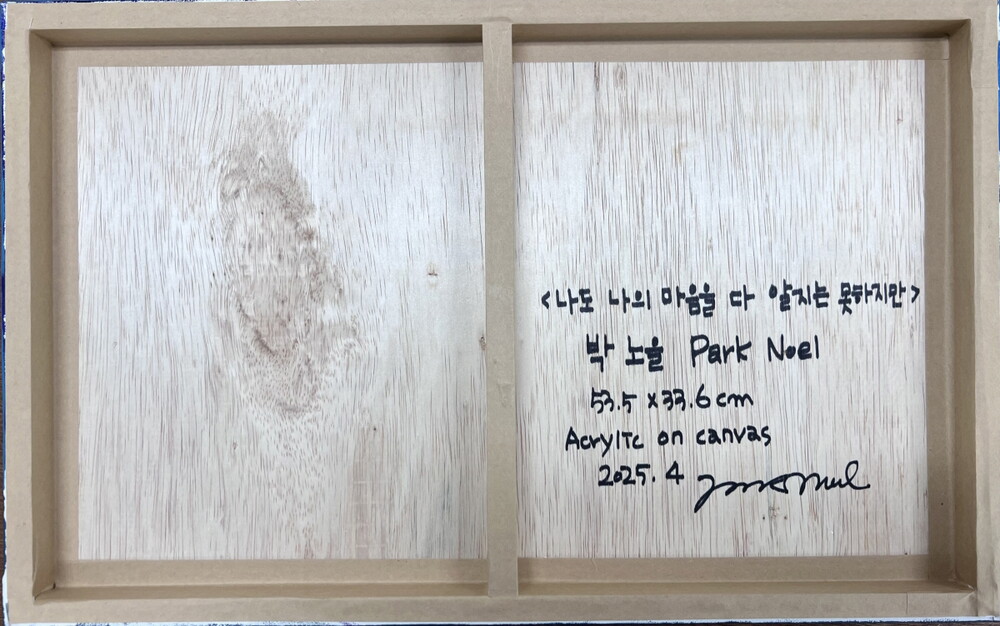 <나도 나의 마음을 다 알지는 못하지만>
박 노을 Park Noel
53.5 x 33.6 cm
Acrylic on canvas
2025. 4